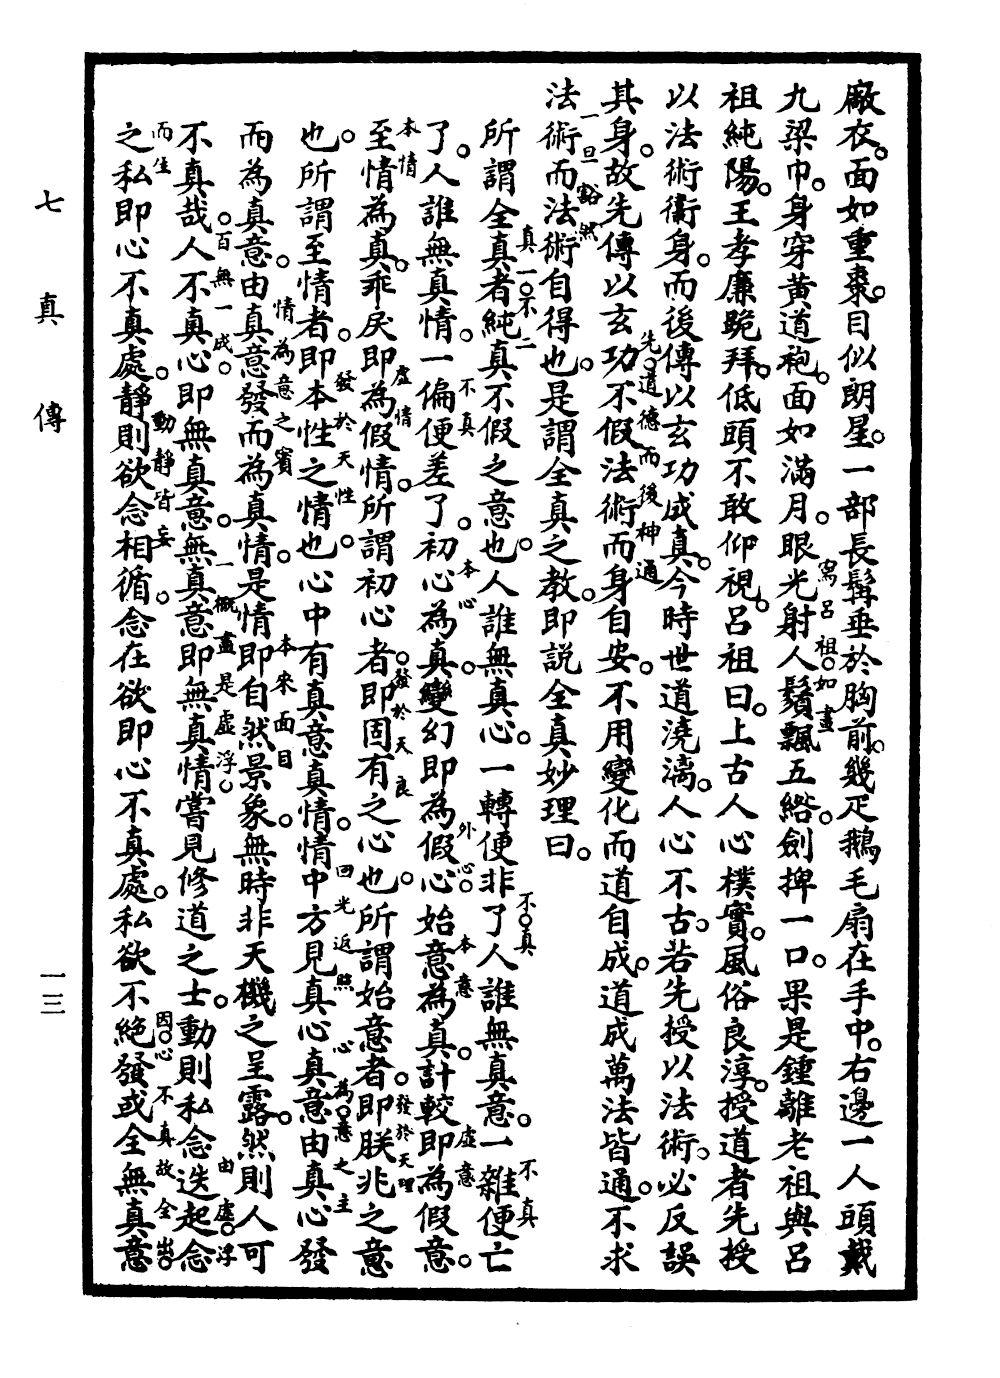 廠衣。面如重棗。目似朗星。一部長髯垂於胸前。幾疋鵝毛扇在手中。右邊一人頭戴
九梁巾。身穿黃道袍。面如滿月。眼光射人鬚飄五綹。劍捭一口。果是鍾離老祖與呂
寫呂祖。如畫
祖純陽。王孝廉跪拜。低頭不敢仰視。呂祖曰。上古人心樸實。風俗良淳。授道者先授
以法術衛身。而後傳以玄功成真。今時世道澆漓。人心不古。若先授以法術。必反誤
先。道德而後神通
其身。故先傳以玄功不假法術而身自安。不用變化而道自成。道成萬法皆通。不求
一旦豁然
法術而法術自得也。是謂全真之教。即説全真妙理曰。
所謂全真者純真不假之意也。人誰無真心。一轉便非了人誰無真意。一雜便亡
真一。不二
不。真
不真
了。人誰無真情。一偏便差了。初心為真。變幻即為假心。始意為真。計較即為假意。
不真
本心
外心。
本意
虛意
至情為真。乖戾即為假情。所謂初心者即固有之心也。所謂始意者即朕兆之意
本情
虛情
。發於天良
。發於天理
也。所謂至情者。即本性之情也。心中有真意真情。情中方見真心真意由真心發
發於天性
回光返照
心為。意之主
而為真意。由真意發而為真情。是情即自然景象。無時非天機之呈露。然則人可
情為意之賓
本來面目
不真哉。人不真心。即無真意。無真意即無真情。嘗見修道之士。動則私念迭起念
百無一成
一概盡是虛浮。
由虛。浮
之私即心不真處。靜則欲念相循。念在欲即心不真處。私欲不絕發或全無真意
而生
動靜皆妄
因。心不真故全出。
七真傳
一三